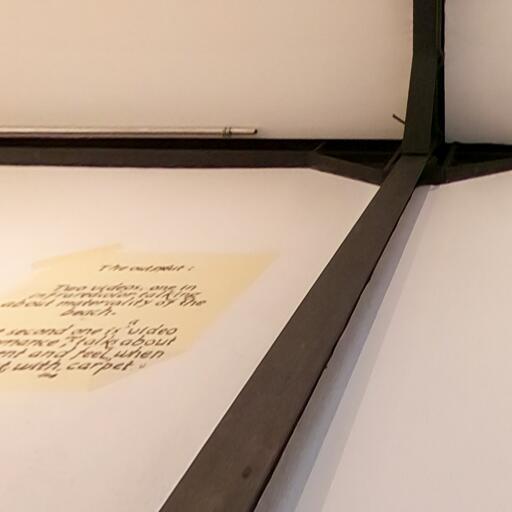 The output :
Two videos, one in
infraredcolor, talking
about materiality of the
beach.
second one is "video
mance," talk about
ent and feel, when
t, with, carpet.